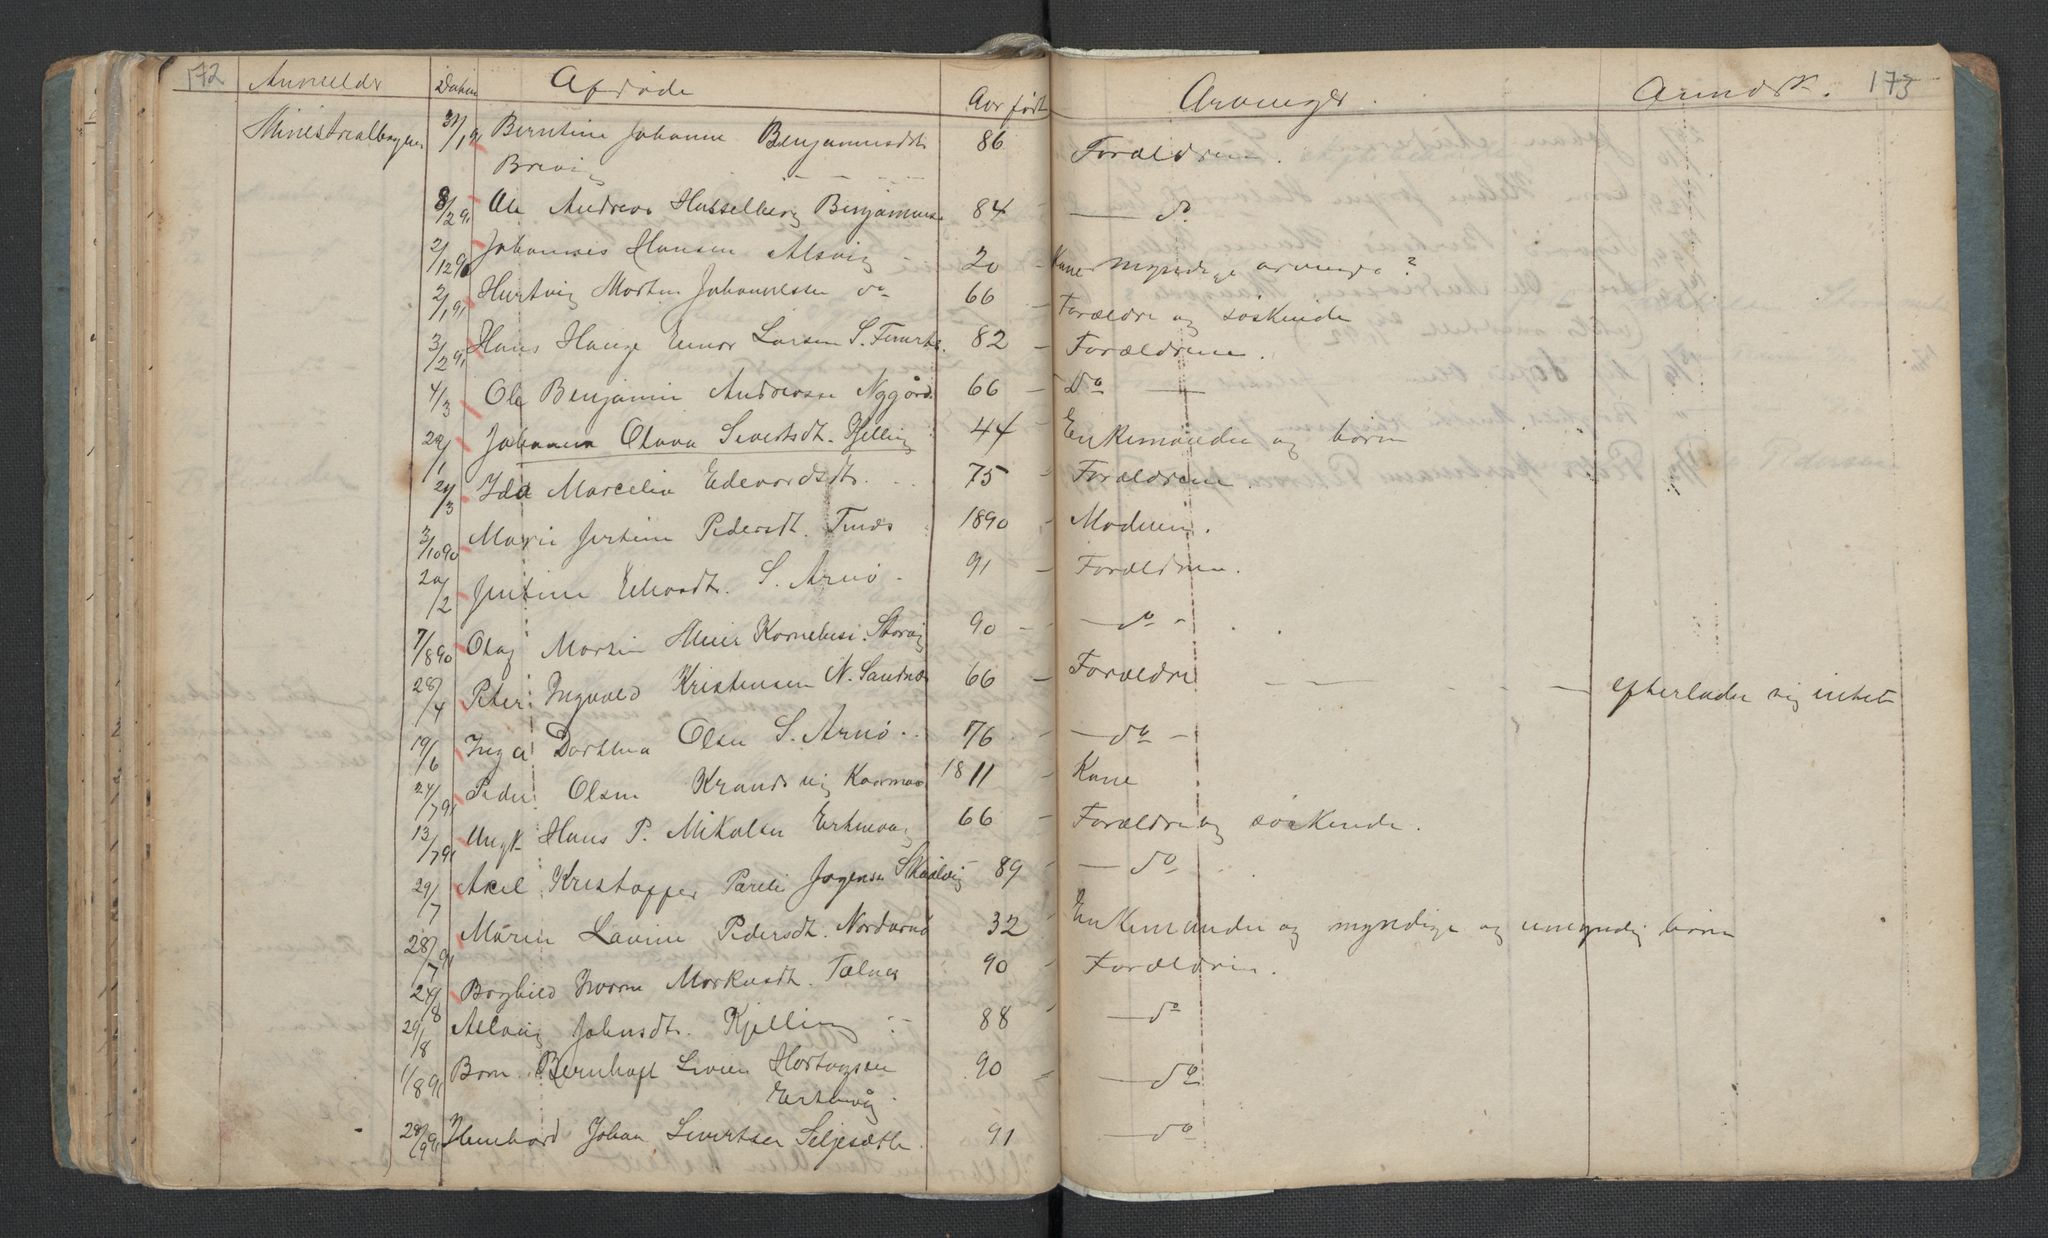 172 Anmelder Datum Afdøde Aar født Arvinger. Anmærk. 173
Ministerialbogen 31/1 91 Berntine Johanne Benjaminsdt 86 Forældrene.
Breivig
8/2 91 Ole Andreas Hasselberg Benjaminse 84 — do
2/12 90 Johannes Hansen Alsvig 20 – Kone myndige arvinge?
2/1 91 Hartvig Morten Johannessen do 66 – Forældre og søskende
3/2 91 Hans Hauge Einar Larsen S. 82 – Forældrene.
4/3 Ole Benjamin Andreasse Nygård. 66 – Do —
29/1 Johanna Olava Sivertsdt. Kjelling 44 Enkemanden og børn
21/3 Ida Marcelie Edevardsdt. 75 – Forældrene.
3/10 90 Marie Jertine Pedersdt. 1890 – Moderen.
20/2 Justine S. Arnø. 91 – Forældrene.
7/8 90 Olaf Martin Meier Kornelius. Storvig 90 – — do –
28/4 Peter Ingvald Kristensen N. Sandnes 66 – Forældre — efterlader sig intet
19/6 Inga Dorthea Olsen S. Arnø. 76 – — do –
24/7 91 Peder Olsen 1811 – Kone
13/7 91 Ungk Hans P. Mikalsen 66 – Forældre og søskende.
29/7 Axel Kristoffer Jørgensen Skaalvig 89 – — do
28/7 91 Maren Lavine Pedersdt. Nordarnø 32 Enkemanden og myndige og umyndig børn
24/8 Borghild Markusdt. 90 – Forældrene.
29/8 Aslaug Johnsdt. Kjelling 88 – — do
1/8 91 Barn Bernhoft Hartvigsen 90 – — do
Ertenvåg
28/9 91 Johan Sivertsen Seljesæth. 91 – — do